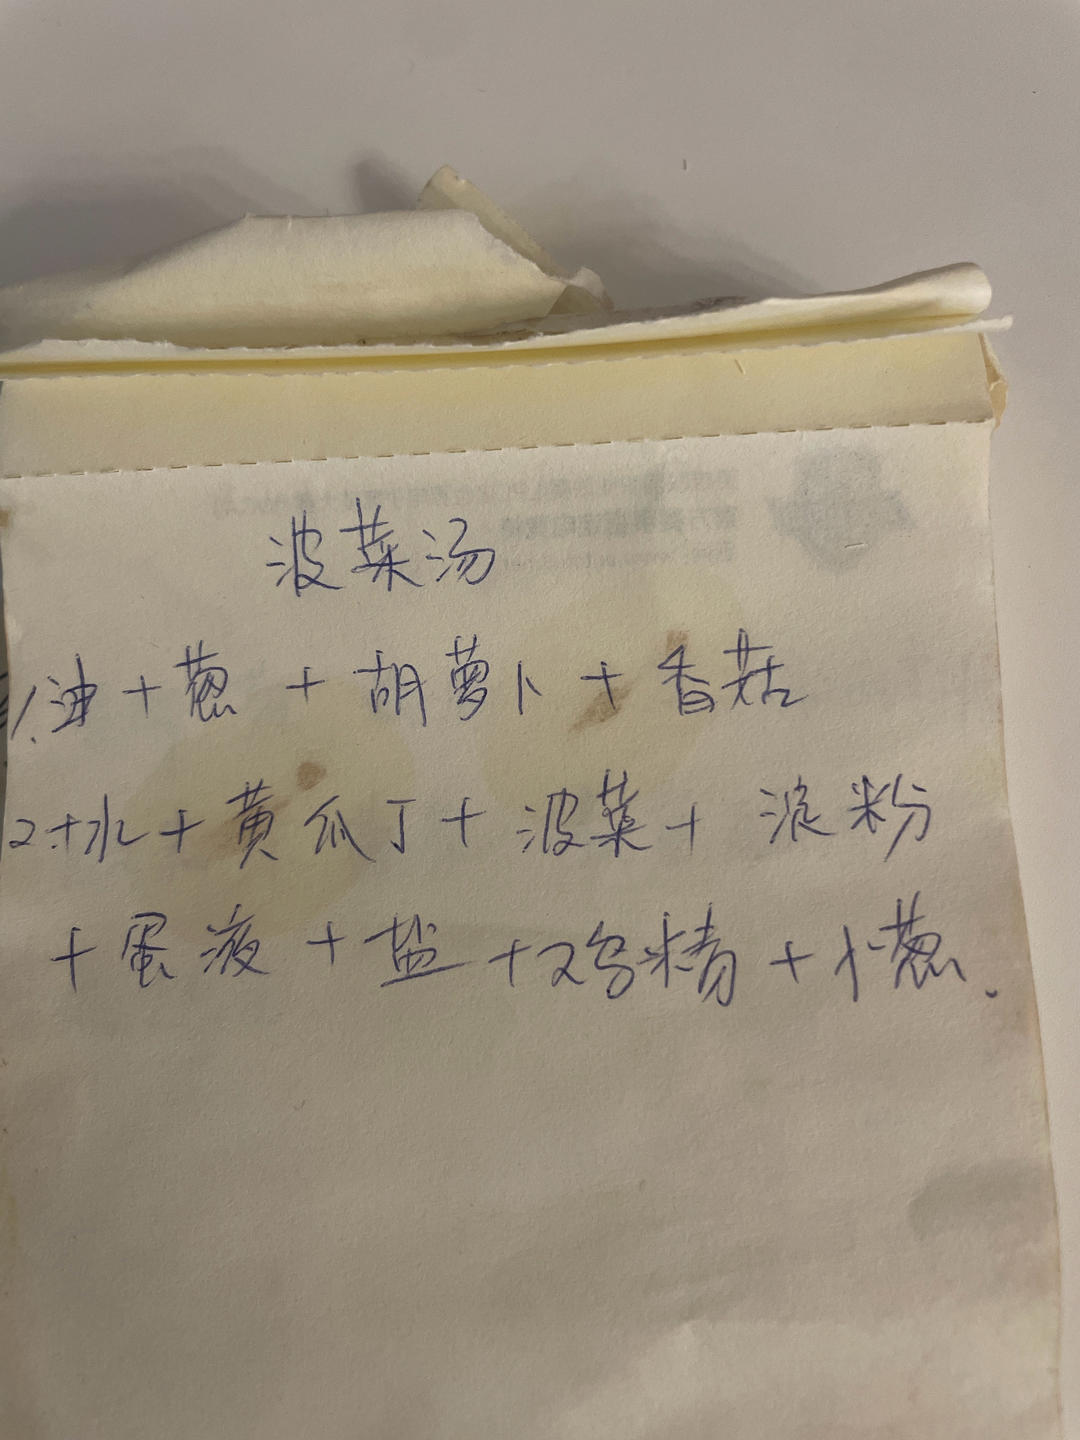 波菜汤
1.油+葱+胡萝卜+香菇
2.+水+黄瓜丁+波菜+淀粉
+蛋液+盐+鸡精+小葱.